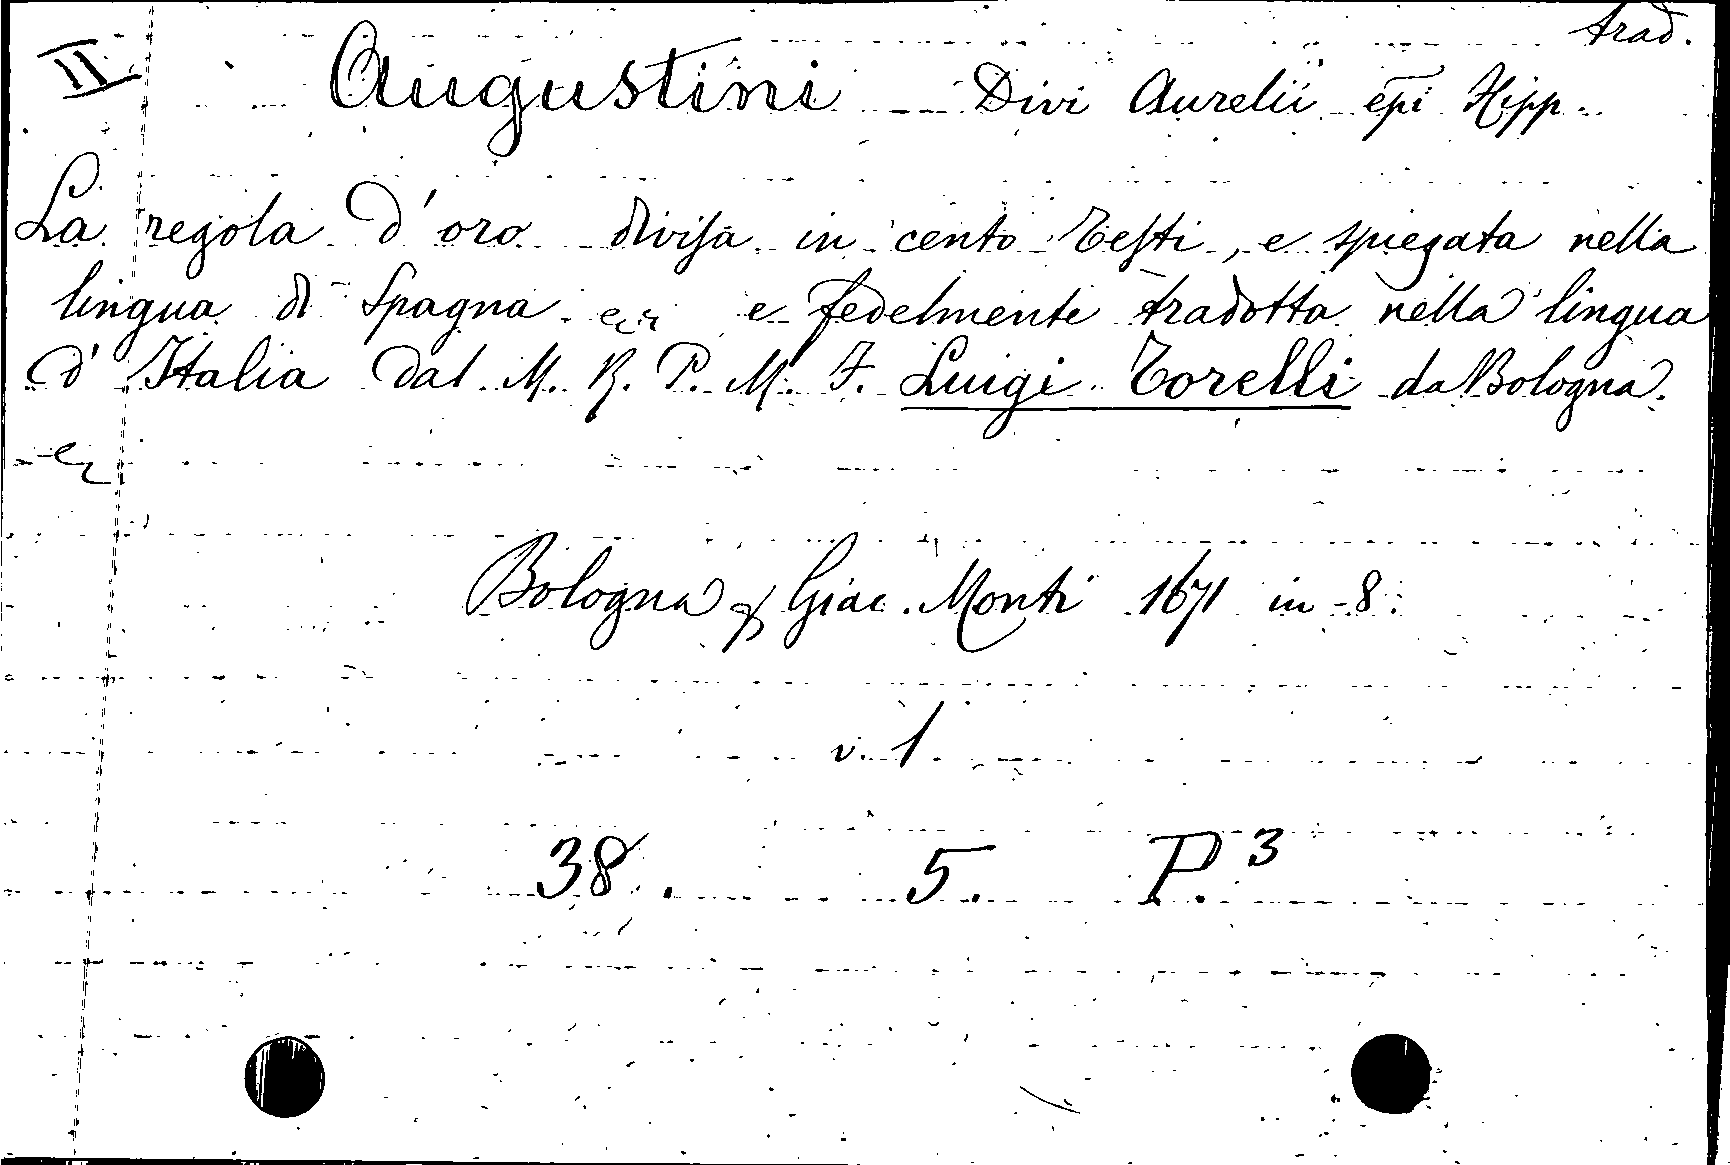 trad.
II Augustini Divi Aurelii epi Hipp.
La regola d'oro diviſa in cento Teſti, e spiegata nella
lingua di Spagna ecc e fedelmente tradotta nella lingua
d'Italia dal M. R. P. M. F. Luigi Torelli da Bologna.
Bologna Giac. Monti 1671 in 8.
v. 1
38. 5. P. 3